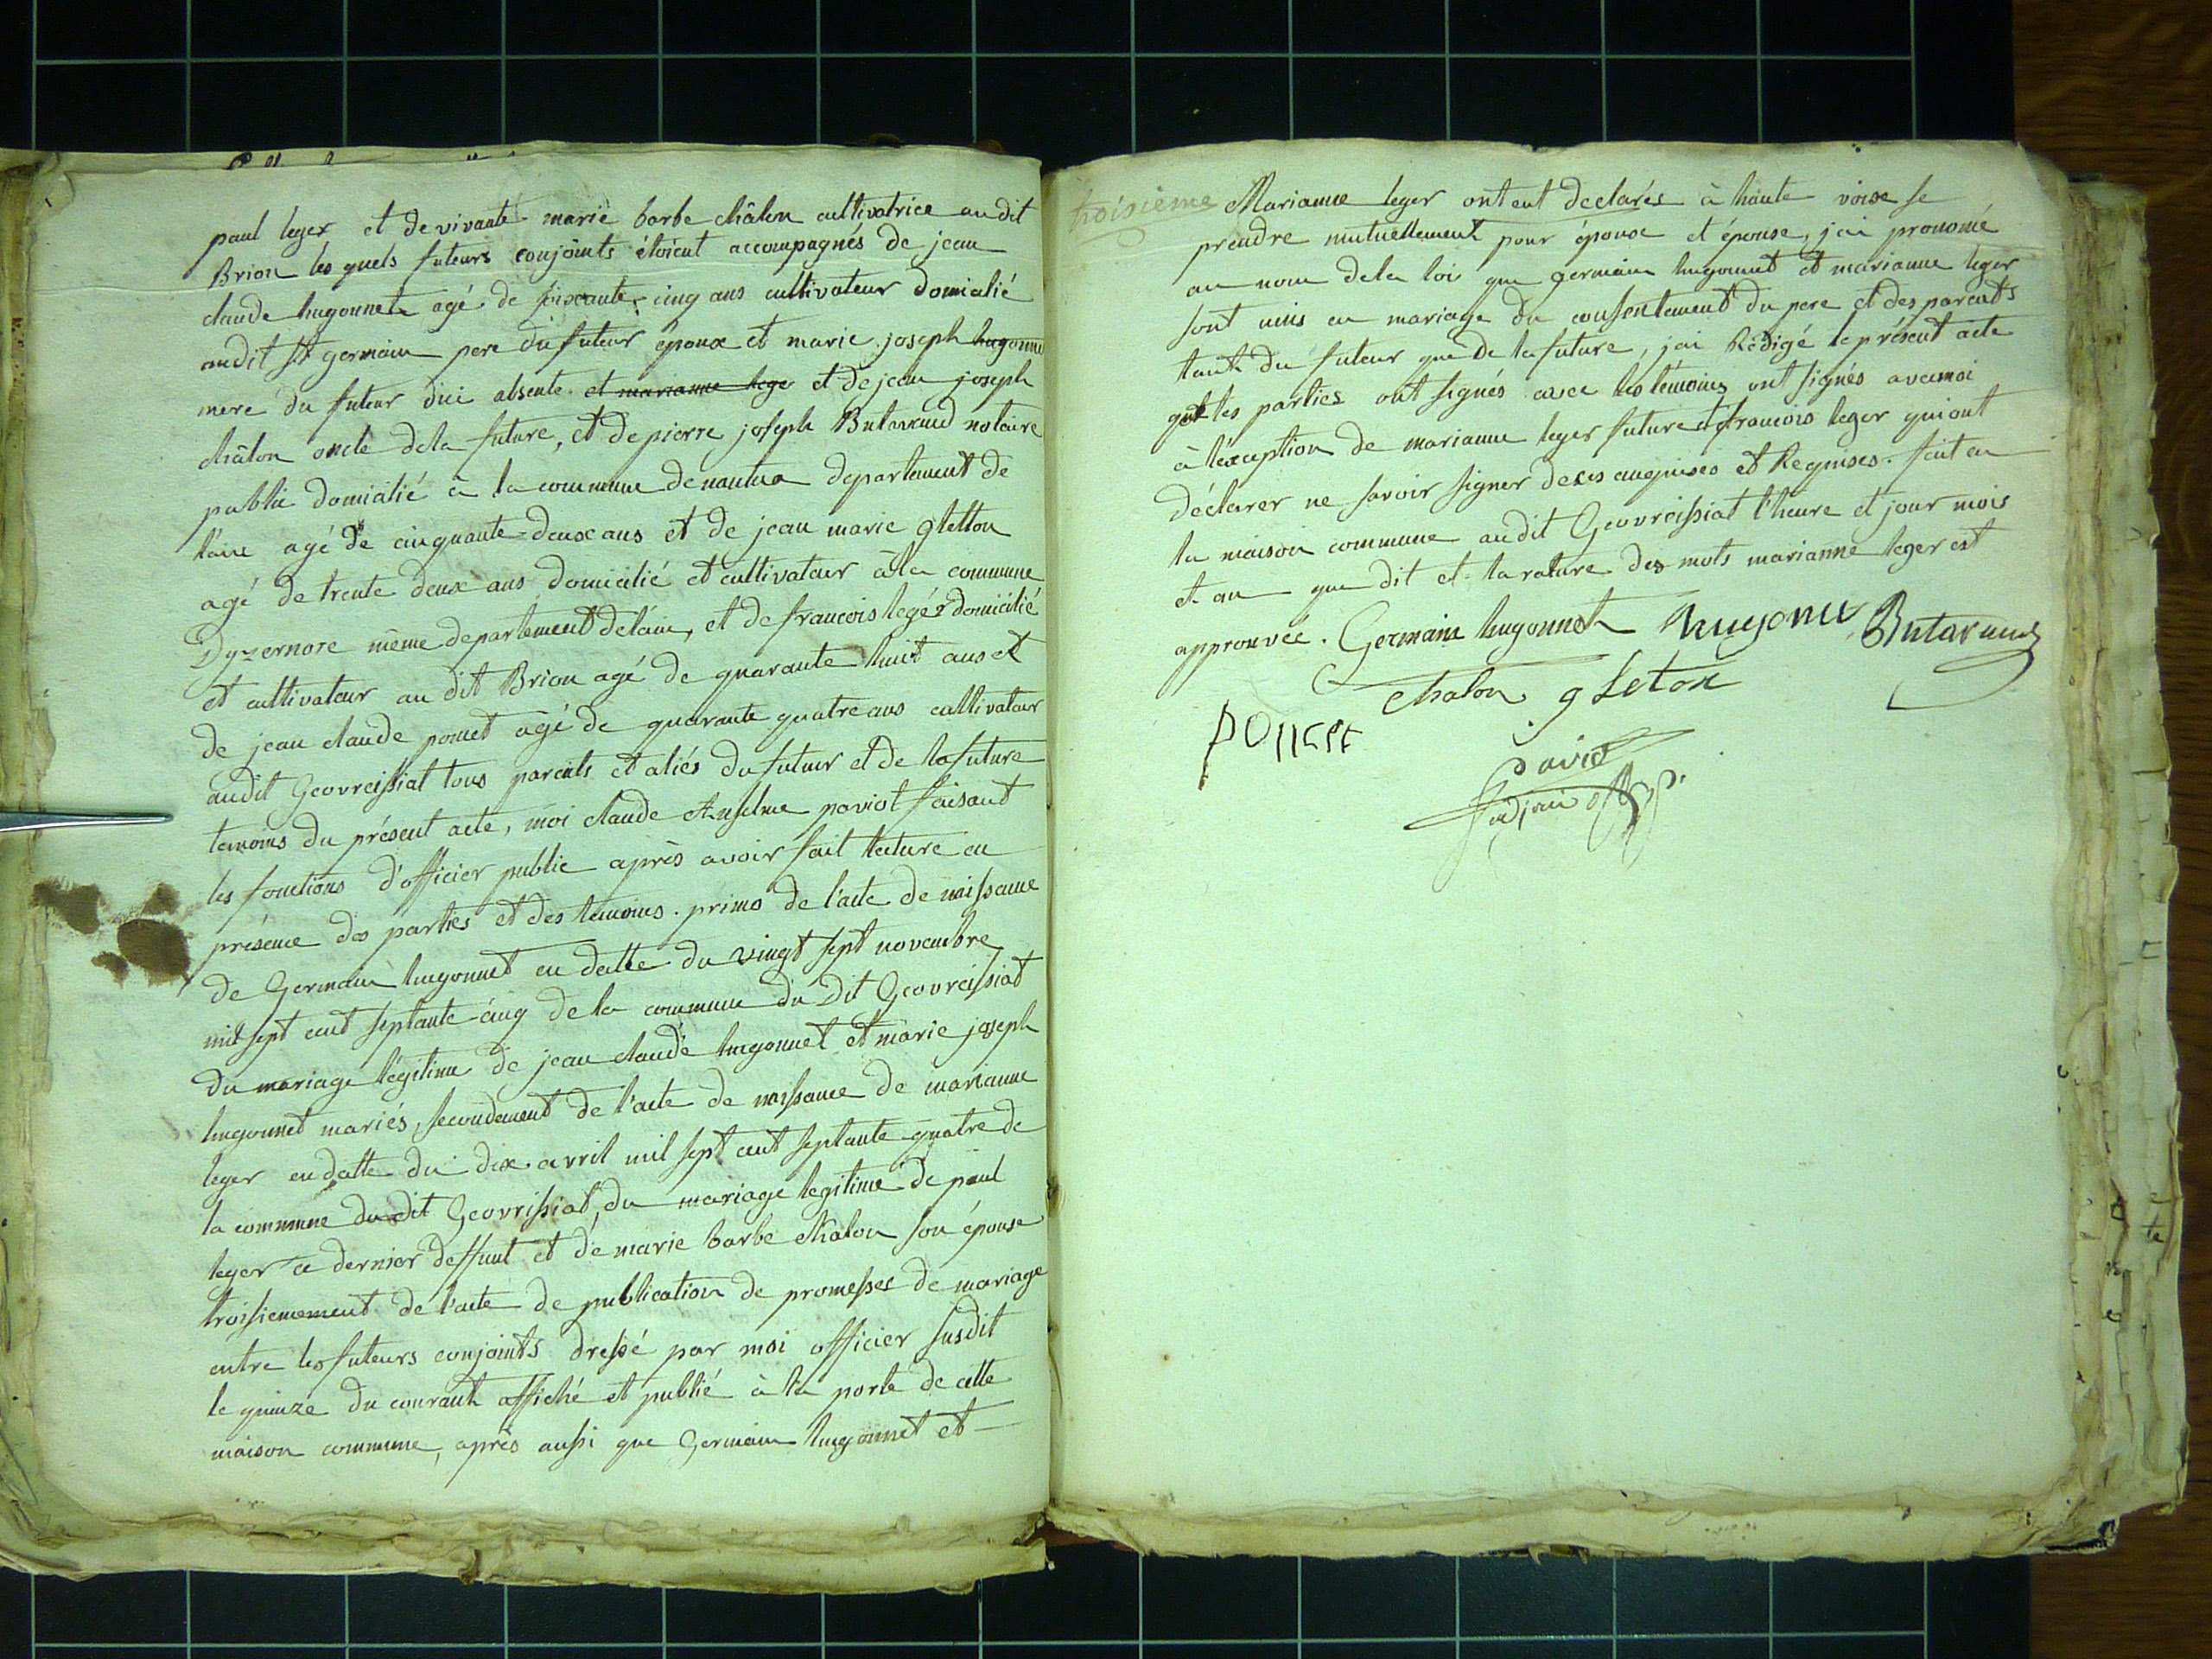 paul leger et de vivante marie barbe châlon cultivatrice audit
Brion les quels futurs conjoints étoient accompagnés de jean
claude hugonnet agé de soixante cinq ans cultivateur domicilié
audit St germain pere du futur époux et marie joseph hugonne
mere du futur dici absente et marianne leger et de jean joseph
châlon oncle dela future, et de pierre joseph Butavaud notaire
public domicilié à la commune de nantua departement de
l'ain agé de cinquante deux ans et de jean marie gletton
agé de trente deux ans domicilié et cultivateur à la commune
Dyzernore même departement delain, et de francois legér domicilié
et cultivateur au dit Brion agé de quarante huit ans et
de jean claude poncet agé de quarante quatre ans cultivateur
audit Geovreissiat tous parents et aliés du futur et de la future
temoins du présent acte, moi claude Anselme paviot faisant
les fonctions d'officier public après avoir fait lecture en
présence des parties et des temoins. primo de l'acte de naissance
de Germain hugonnet en datte du vingt sept novembre
mil sept cent septante-cinq de la commune du Dit Geovreissiat
du mariage légitime de jean claude hugonnet et marie joseph
hugonnet mariés, secondement de l'acte de naissance de marianne
leger en datte du dix avril mil sept cent septante quatre de
la commune du dit Geovrissiat, du mariage legitime de paul
leger ce dernier deffunt et de marie barbe Chalon son épouse
troisiemement de l'acte de publication de promesses de mariage
entre les futurs conjoints dressé par moi officier susdit
le quinze du courant affiché et publié à la porte de cette
maison commune, après aussi que Germain hugonnet et
troisieme Marianne leger ont eut declarés à haute voixe se
prendre mutuellement pour époux et épouse, jai pronomé
au nom dela loi que germain hugonnet et marianne leger
sont unis en mariage du consentement du pere et des parents
tant du futur que de la future, jai Rédigé le présent acte
que les parties ont signés avec les témoins ont signés avec moi
à l'exception de marianne leger future et francois leger qui ont
déclarer ne savoir signer de ces enquises et Requises. fait en
la maison commune audit Geovreissiat l'heure et jour mois
et an que dit et la rature des mots marianne leger est
approuvée. Germain hugonnet hugone Butavaud
Chalon gleton
poncet
paviot
adjoin